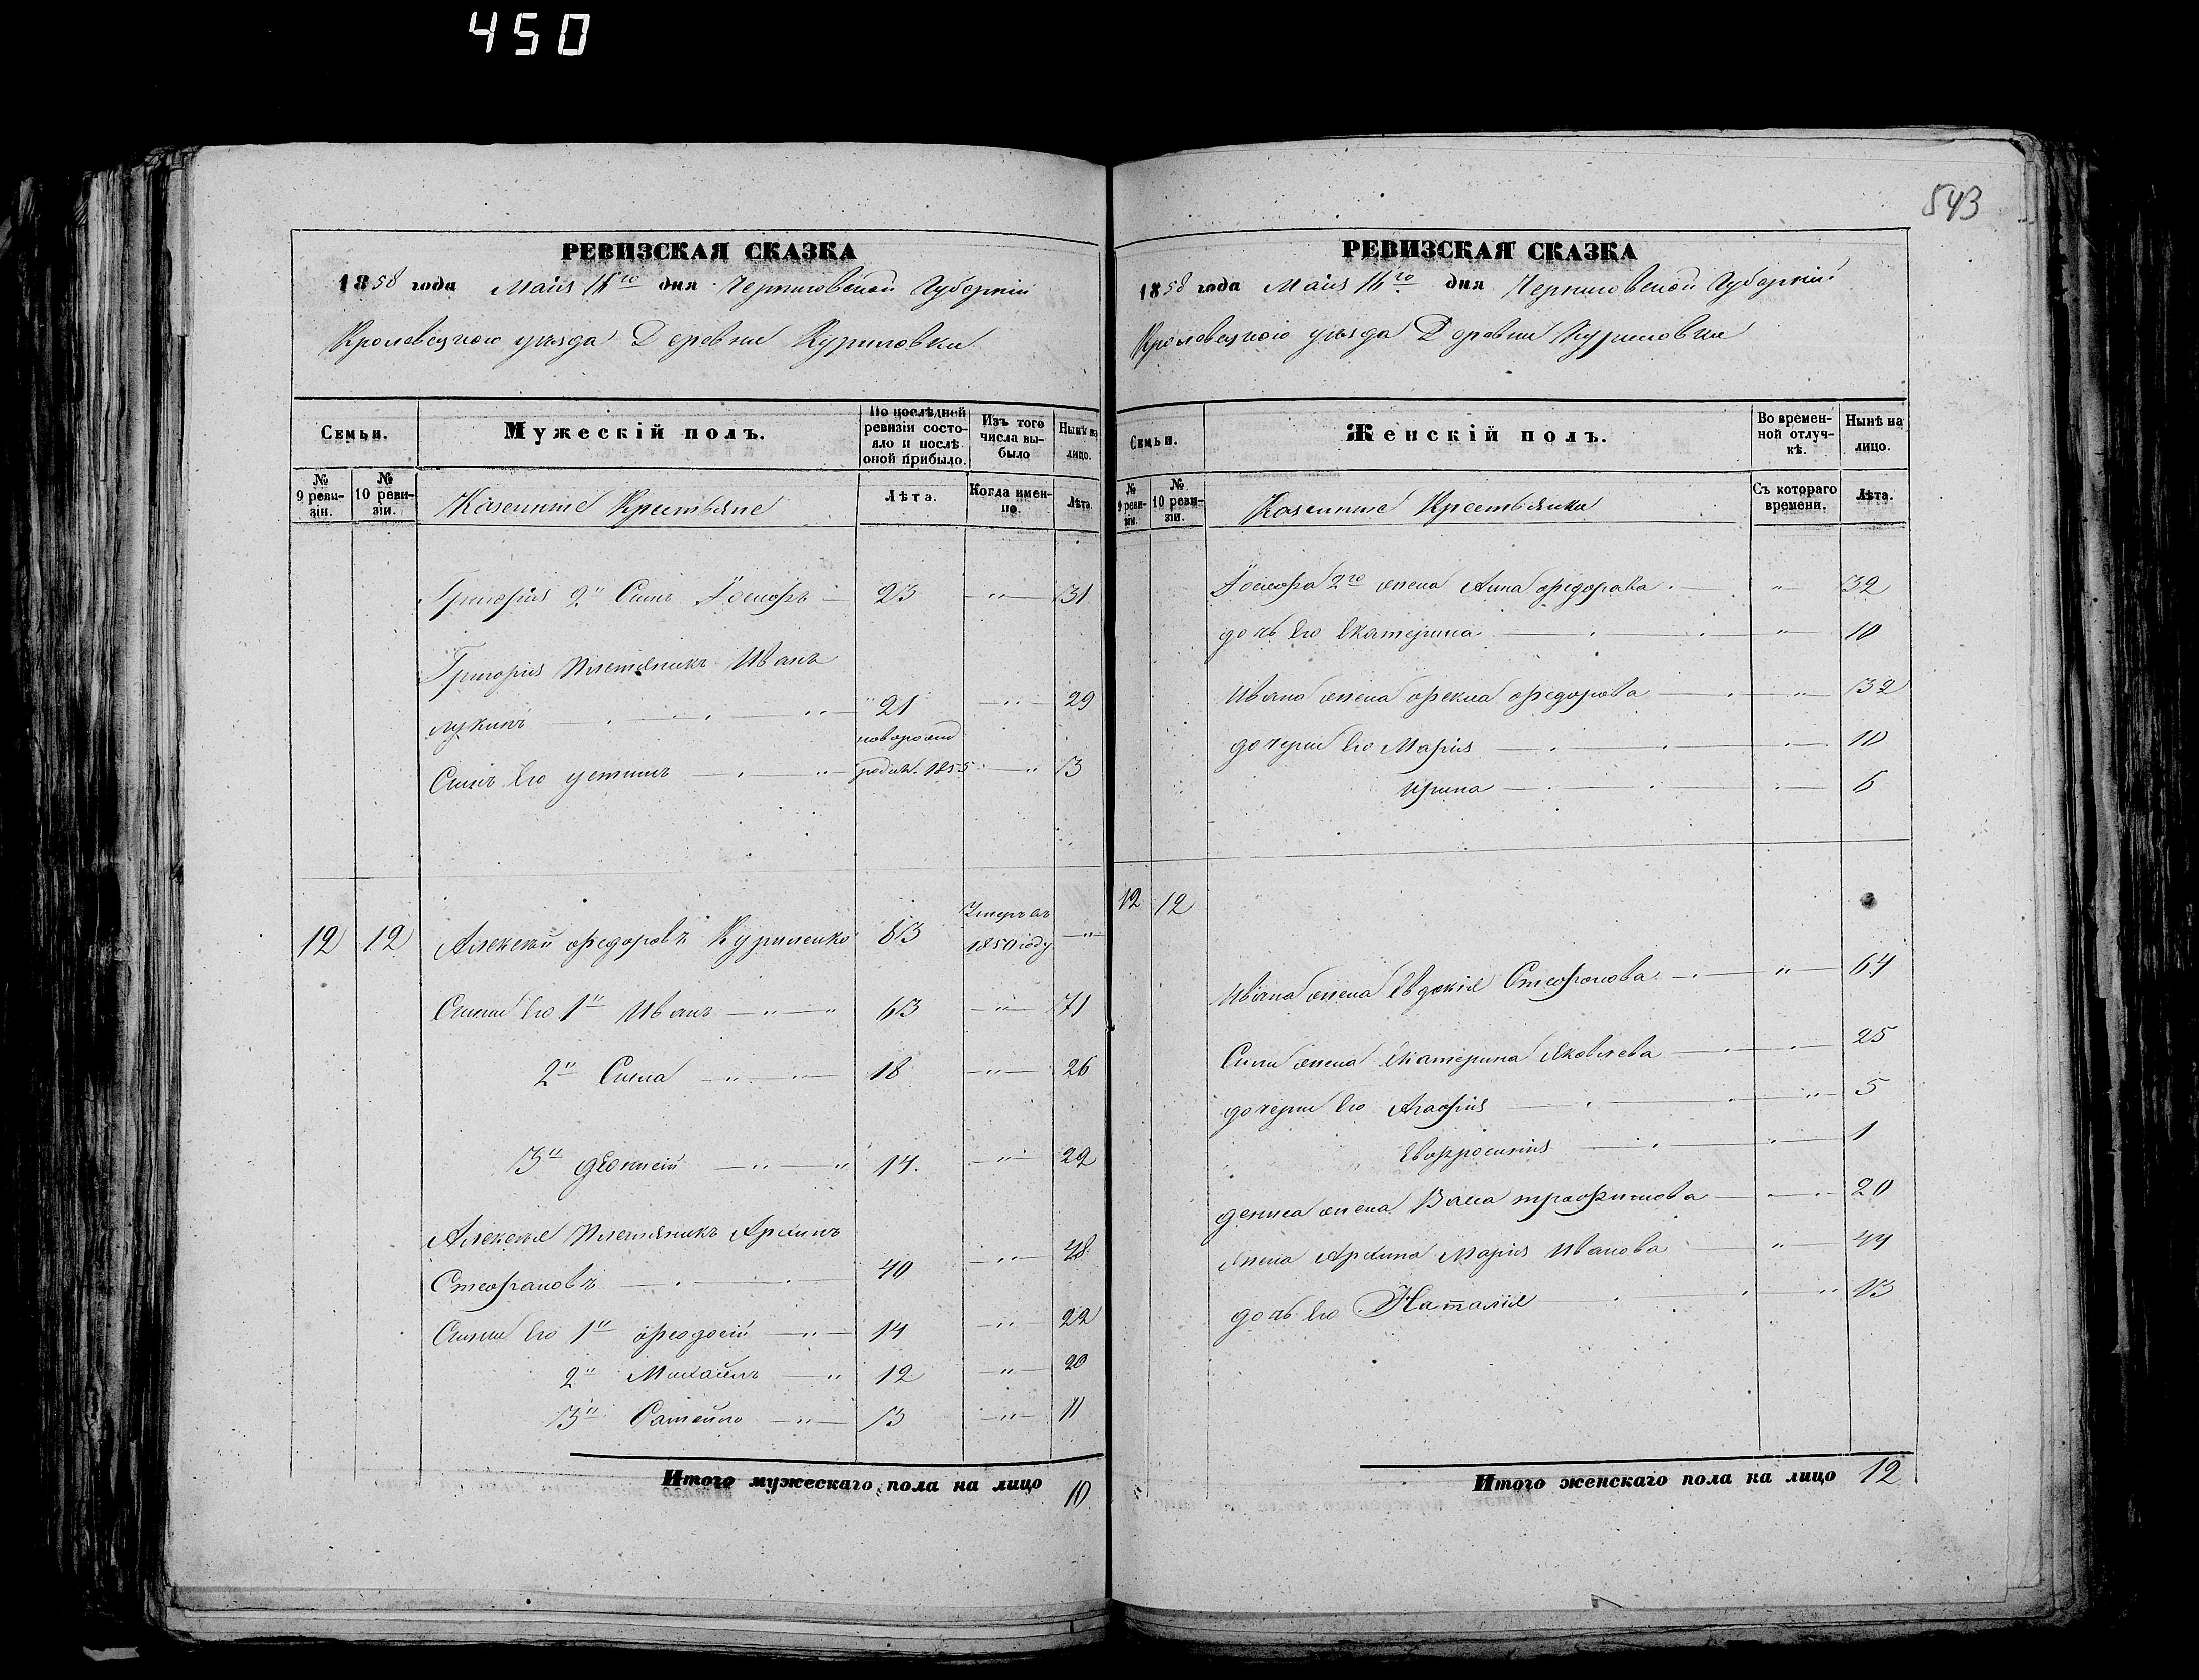 450
543
РЕВИЗСКАЯ СКАЗКА
1858 года Маія 16го дня Черниговской Губерніи
Кролевецкого уѣзда Деревни Куриловки
Семьи.
Мужескій полъ.
По послѣдней ревизіи состояло и послѣ оной прибыло.
Изъ того числа выбыло
Нынѣ на лицо.
№ 9 ревизіи.
№ 10 ревизіи.
Казенные Крестьяне
Лѣта.
Когда именно.
Лѣта
Григорія 2й Сынъ Іосифъ — 23 — " — 31
Григорія Племяникъ Иванъ
Лукинъ — 21 — " — 29
новорожд
Сынъ Его Устинъ — родил. 1855 — " 3
Умеръ въ
12 12 Алексѣй Федоровъ Куриленко 83 1850 году — " —
Сыны Его 1й Иванъ — " — " 63 — " — 71
2й Сила — " — " — 18 — " — 26
3й Денисій — " — " 14. — " — 22
Алексѣя Племяникъ Архипъ
Стефановъ — 40 — " — 48
Сыны Его 1й Феодосій — " — 14 — " — 22
2й Михаилъ — " 12 — " — 20
3й — " — 3 — " — 11
Итого мужескаго пола на лицо 10
РЕВИЗСКАЯ СКАЗКА
1858 года Маія 16го дня Черниговской Губерніи
Кролевецкого уѣзда Деревни Куриловки
Семьи.
Женскій полъ.
Во временной отлучкѣ.
Нынѣ на лицо.
№ 9 ревизіи.
№ 10 ревизіи.
Казенные Крестьянки
Съ котораго времени.
Лѣта.
Іосифа 2го жена Анна Федорова — " — 32
дочь Его Екатерина — " — 10
Ивана жена Фекла Федорова — " — 32
дочери Его Марія — " — 10
Ирина — " — 6
12 12
Ивана жена Евдокія Стефанова — " — 64
Силы жена Екатерина Яковлева — 25
дочери Его Агафія — " — 5
Евфросинія — " — 1
Дениса жена Васса Трофимова — 20
Жена Архипа Марія Иванова " — 44
дочь Его Наталія — " 13
Итого женскаго пола на лицо 12